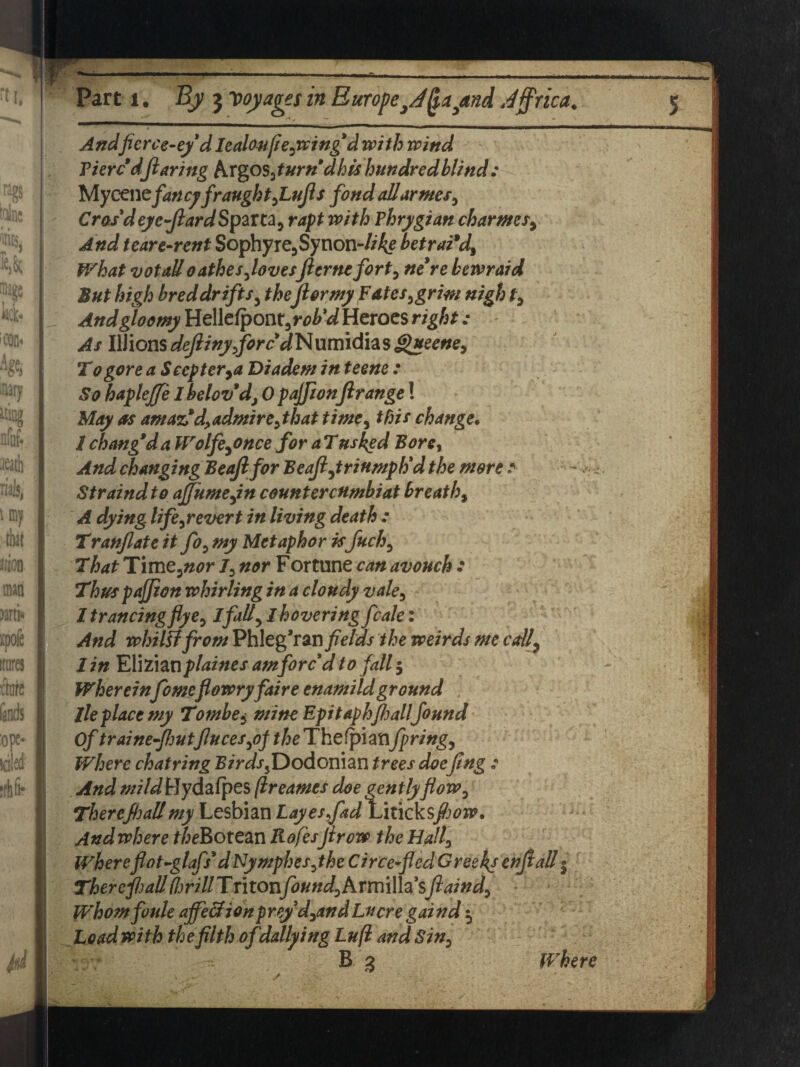 Part 1. By 3 voyages in Europe, Aſia, and Affrica. 5
And fierce-ey'd Iealouſie, wing'd with wind
Pierc'd ſtaring Argos, turn'd his hundred blind:
Mycene fancy fraught, Luſts fond all armes,
Cros'd eye-ſtard Sparta, rapt with Phrygian charmes,
And teare-rent Sophyre, Synon-like betrai'd,
What votall oathes, loves ſterne fort, ne're bewraid
But high bred drifts, the ſtormy Fates, grim night,
And gloomy Helleſpont, rob'd Heroes right:
As Illions deſtiny, forc'd Numidias Queene,
To gore a Scepter, a Diadem in teene:
So hapleſſe I belov'd, O paſſion ſtrange!
May as amaz'd, admire, that time, this change.
I chang'd a Wolfe, once for a Tusked Bore,
And changing Beaſt for Beaſt, triumph'd the more:
Straind to aſſume, in countercumbiat breath,
A dying life, revert in living death:
Tranſlate it ſo, my Metaphor is ſuch,
That Time, nor I, nor Fortune can avouch:
Thus paſſion whirling in a cloudy vale,
I trancing flye, I fall, I hovering ſcale:
And whilſt from Phleg'ran fields the weirds me call,
I in Elizian plaines am forc'd to fall;
Wherein ſome flowry faire enamild ground
Ile place my Tombe, mine Epitaph ſhall ſound
Of traine-ſhut ſluces, of the Theſpian ſpring,
Where chatring Birds, Dodonian trees doe ſing:
And mild Hydaſpes ſtreames doe gently flow,
There ſhall my Lesbian Layes, ſad Liticks ſhow.
And where the Botean Roſes ſtrow the Hall,
Where flot-glaſs'd Nymphes, the Circe-fled Greeks enſtall;
There ſhall ſhrill Triton ſound, Armilla's ſtaind,
Whom foule affection prey'd, and Lucre gaind;
Load with the filth of dallying Luſt and Sin,
B 3 Where